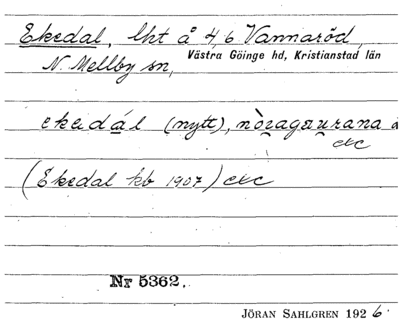 Ekedal, lht å 4,6 Vannaröd,
N. Mellby sn, Västra Göinge hd, Kristianstad län
ekadál (nytt),
etc
(Ekedal kb 1907) etc
Nr 5362.
JÖRAN SAHLGREN 1926.